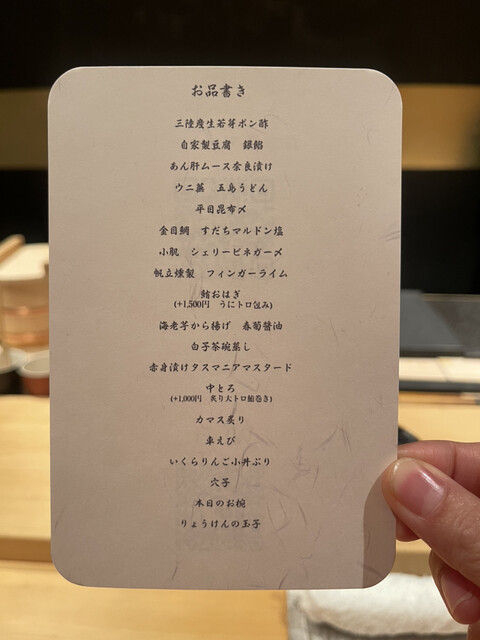 お品書き
三陸産生若芽ポン酢
自家製豆腐　銀餡
あん肝ムース奈良漬け
ウニ藁　五島うどん
平目昆布〆
金目鯛　すだちマルドン塩
小肌　シェリービネガー〆
帆立燻製　フィンガーライム
鮪おはぎ
(+1,500円　うにトロ包み)
海老芋から揚げ　春菊醤油
白子茶碗蒸し
赤身漬けタスマニアマスタード
中とろ
(+1,000円　炙り大トロ鮪巻き)
カマス炙り
車えび
いくらりんご小丼ぶり
穴子
本日のお椀
りょうけんの玉子